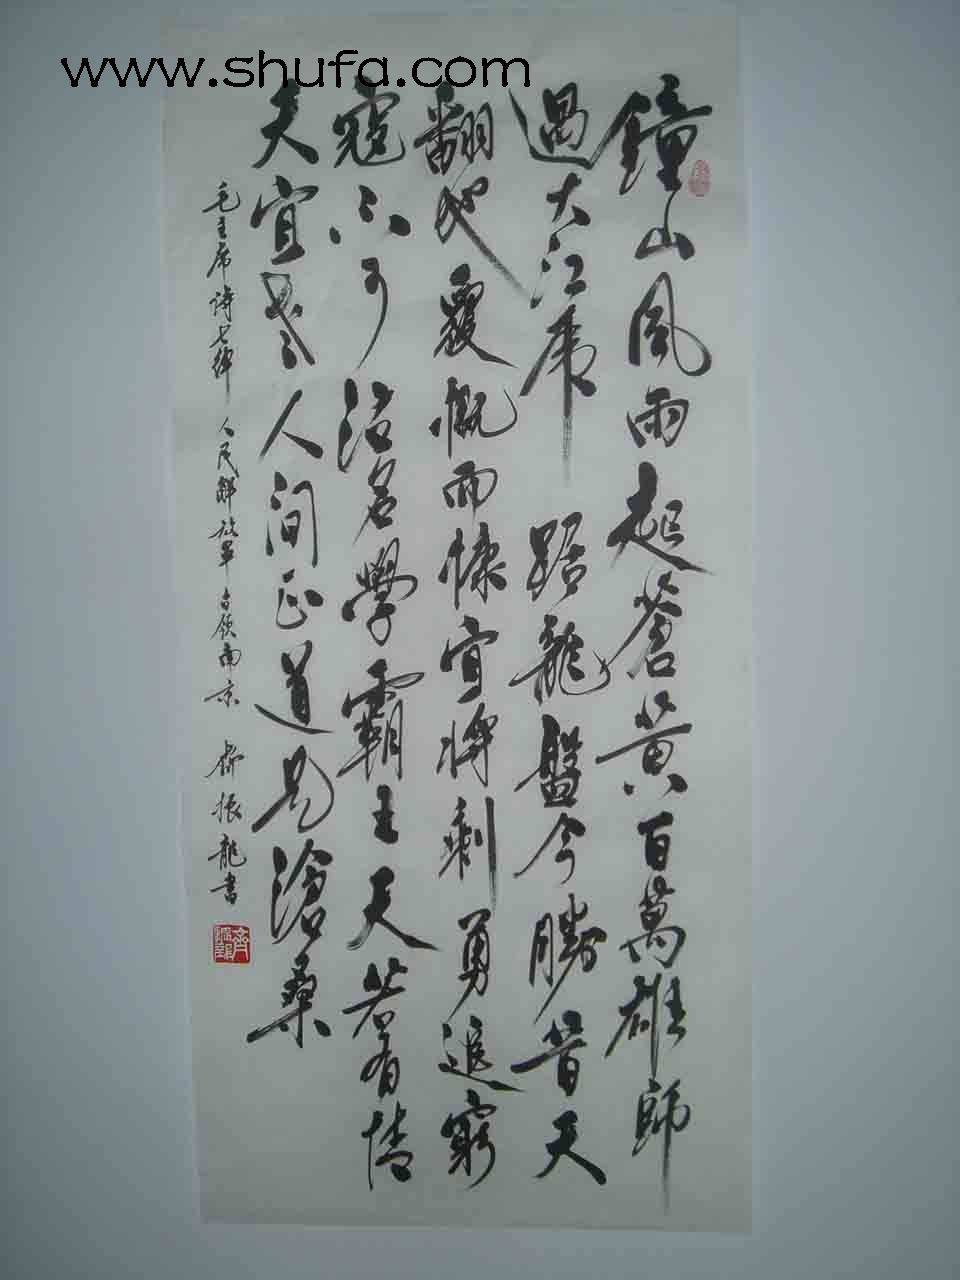 www.shufa.com
鐘山風雨起蒼黃百萬雄師
過大江虎踞龍盤今勝昔天
翻地覆慨而慷宜將剩勇追窮
寇不可沽名學霸王天若有情
天宜老人間正道是滄桑
毛主席詩七律 人民解放軍占領南京 齊振龍書